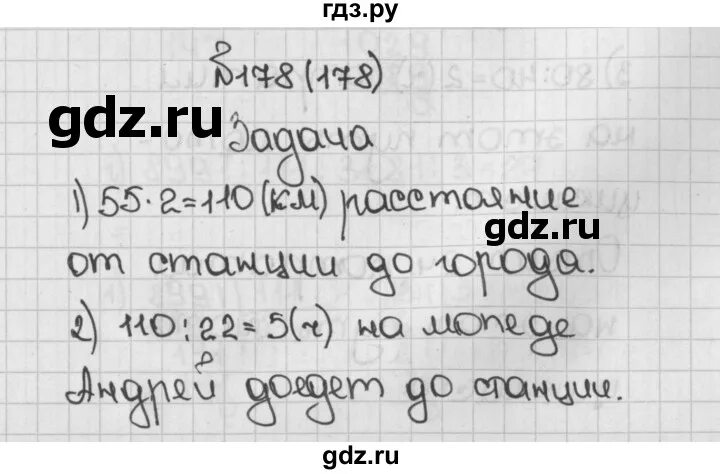 гдз.ру
№178(178)
gdz.ru
Задача
1) 55·2=110(км) расстояние
gdz.ru
от станции до города.
2) 110:22=5(ч) на мопеде
Андрей доедет до станции.
gdz.ru